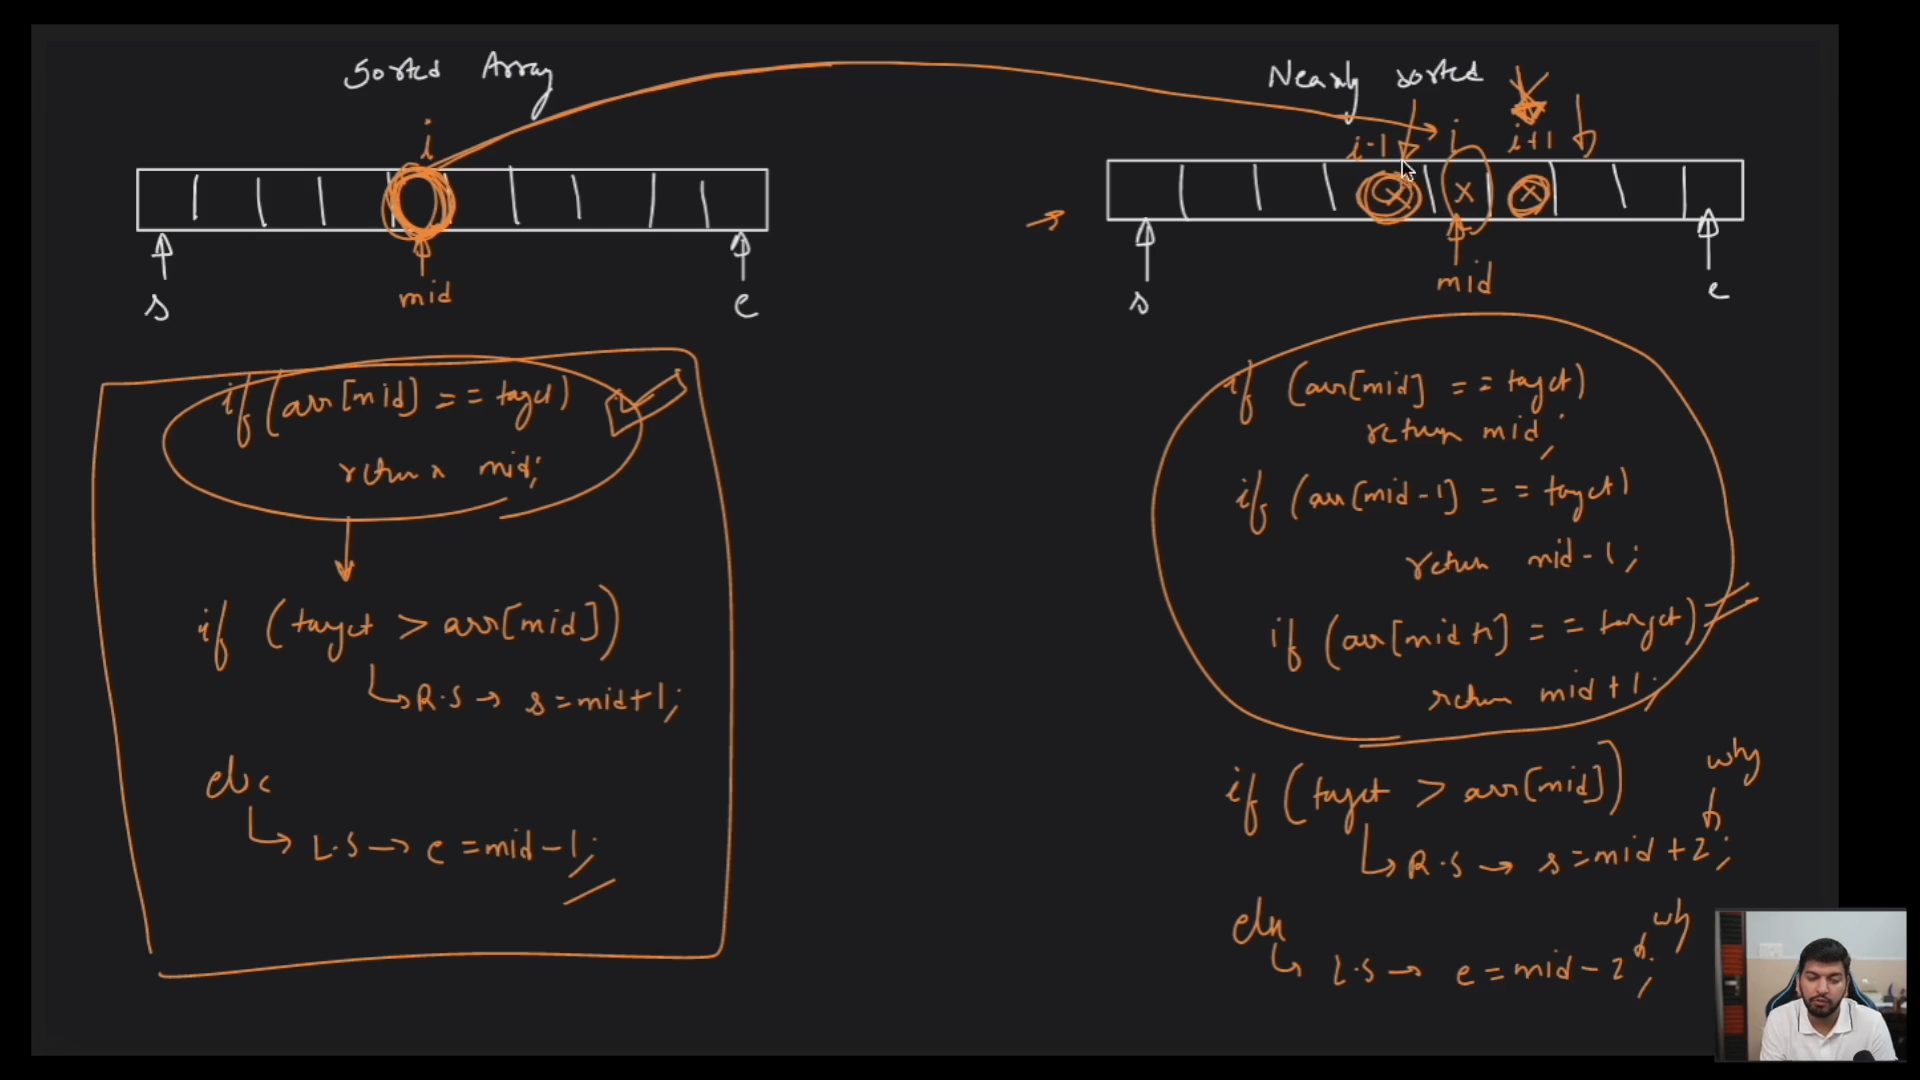 Sorted Array
i
mid
s
e
if (arr[mid] == target)
return mid;
if (target > arr[mid])
R.S → s = mid+1;
else
L.S → e = mid-1;
Nearly sorted
i-1 i i+1
x x x
mid
s
e
if (arr[mid] == target)
return mid;
if (arr[mid-1] == target)
return mid-1;
if (arr[mid+1] == target)
return mid+1;
if (target > arr[mid])
why
R.S → s = mid+2;
else
why
L.S → e = mid-2;